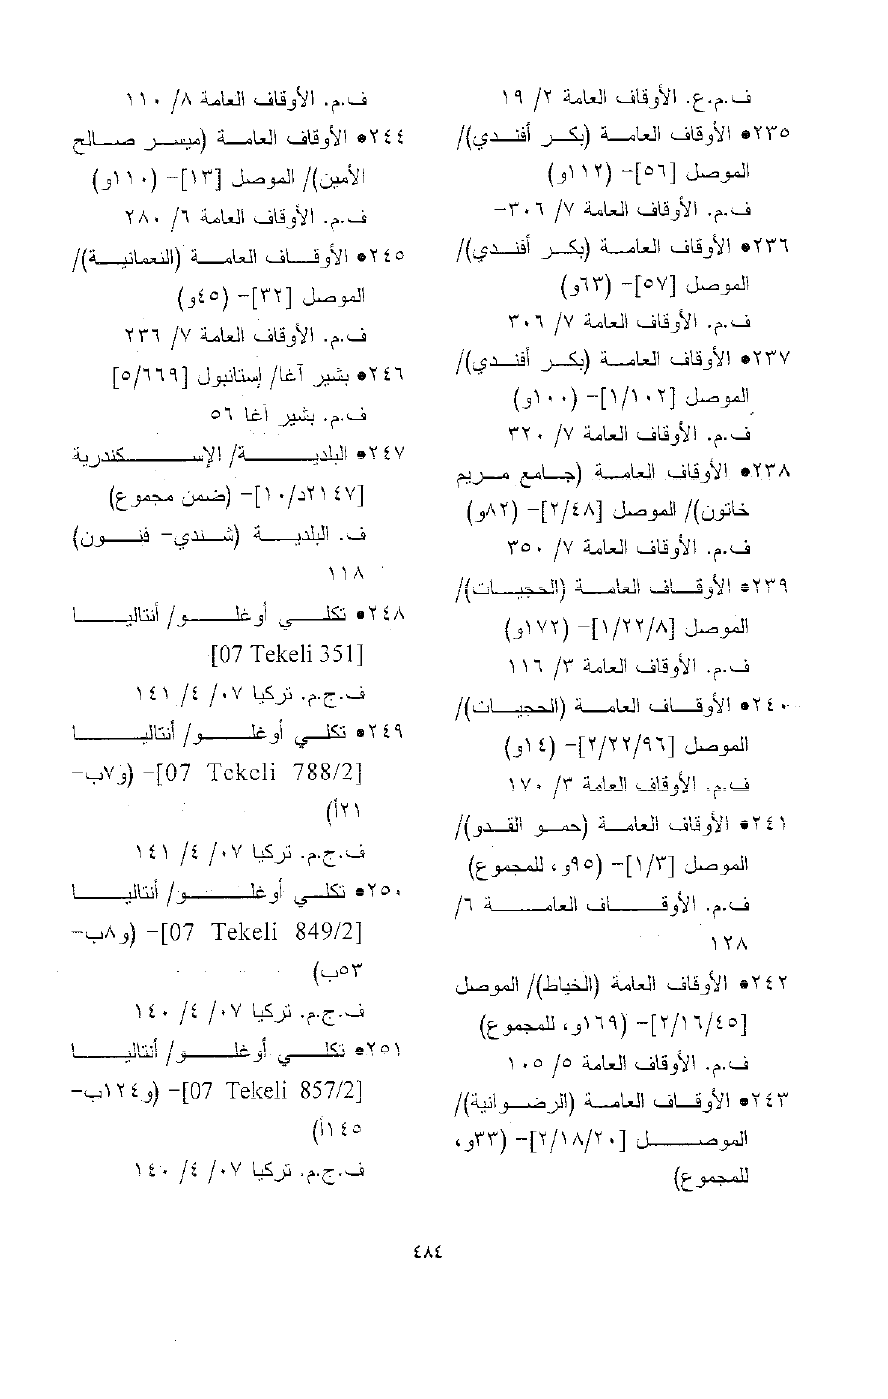 ف.م.ع. الأوقاف العامة ٢/ ١٩
٢٣٥• الأوقاف العامة (بكر أفندي)/
الموصل [٥٦]- (١١٢و)
ف.م. الأوقاف العامة ٧/ ٣٠٦-
٢٣٦• الأوقاف العامة (بكر أفندي)/
الموصل [٥٧]- (٦٣و)
ف.م. الأوقاف العامة ٧/ ٣٠٦
٢٣٧• الأوقاف العامة (بكر أفندي)/
الموصل [١/١٠٢]- (١٠٠و)
ف.م. الأوقاف العامة ٧/ ٣٢٠
٢٣٨• الأوقاف العامة (جامع مريم
خاتون)/ الموصل [٢/٤٨]- (٨٢و)
ف.م. الأوقاف العامة ٧/ ٣٥٠
٢٣٩• الأوقاف العامة (الحجيات)/
الموصل [١/٢٢/٨]- (١٧٢و)
ف.م. الأوقاف العامة ٣/ ١١٦
٢٤٠• الأوقاف العامة (الحجيات)/
الموصل [٢/٢٢/٩٦]- (١٤و)
ف.م. الأوقاف العامة ٣/ ١٧٠
٢٤١• الأوقاف العامة (حمو القدو)/
الموصل [١/٣]- (٩٥و، للمجموع)
ف.م. الأوقاف العامة ٦/
١٢٨
٢٤٢• الأوقاف العامة (الخياط)/ الموصل
[٢/١٦/٤٥]- (١٦٩و، للمجموع)
ف.م. الأوقاف العامة ٥/ ١٠٥
٢٤٣• الأوقاف العامة (الرضوانية)/
الموصل [٢/١٨/٢٠]- (٣٣و،
للمجموع)
ف.م. الأوقاف العامة ٨/ ١١٠
٢٤٤• الأوقاف العامة (ميسر صالح
الأمين)/ الموصل [١٣]- (١١٠و)
ف.م. الأوقاف العامة ٦/ ٢٨٠
٢٤٥• الأوقاف العامة (النعمانية)/
الموصل [٣٢]- (٤٥و)
ف.م. الأوقاف العامة ٧/ ٢٣٦
٢٤٦• بشير آغا/ إستانبول [٥/٦٦٩]
ف.م. بشير آغا ٥٦
٢٤٧• البلدية/ الإسكندرية
[٢١٤٧د/١٠]- (ضمن مجموع)
ف. البلدية (شندي- فنون)
١١٨
٢٤٨• تكلي أوغلو/ أنتاليا
[07 Tekeli 351]
ف.ج.م. تركيا ٠٧/ ٤/ ١٤١
٢٤٩• تكلي أوغلو/ أنتاليا
[07 Tekeli 788/2]- (و٧ب-
٢١أ)
ف.ج.م. تركيا ٠٧/ ٤/ ١٤١
٢٥٠• تكلي أوغلو/ أنتاليا
[07 Tekeli 849/2]- (و٨ب-
٥٣ب)
ف.ج.م. تركيا ٠٧/ ٤/ ١٤٠
٢٥١• تكلي أوغلو/ أنتاليا
[07 Tekeli 857/2]- (و١٢٤ب-
١٤٥أ)
ف.ج.م. تركيا ٠٧/ ٤/ ١٤٠
٤٨٤